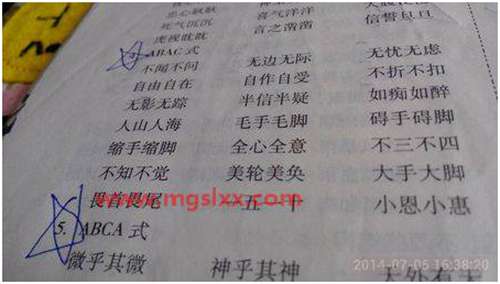 死气沉沉 喜气洋洋
虎视眈眈 言之凿凿 信誓旦旦
ABAC 式
不闻不问 无边无际 无忧无虑
自由自在 自作自受 不折不扣
无影无踪 半信半疑 如痴如醉
人山人海 毛手毛脚 碍手碍脚
缩手缩脚 全心全意 不三不四
不知不觉 美轮美奂 大手大脚
畏首畏尾 一五一十 小恩小惠
www.mgslxx.com
5. ABCA 式
微乎其微 神乎其神 天外有天
2014-07-05 16:38:20